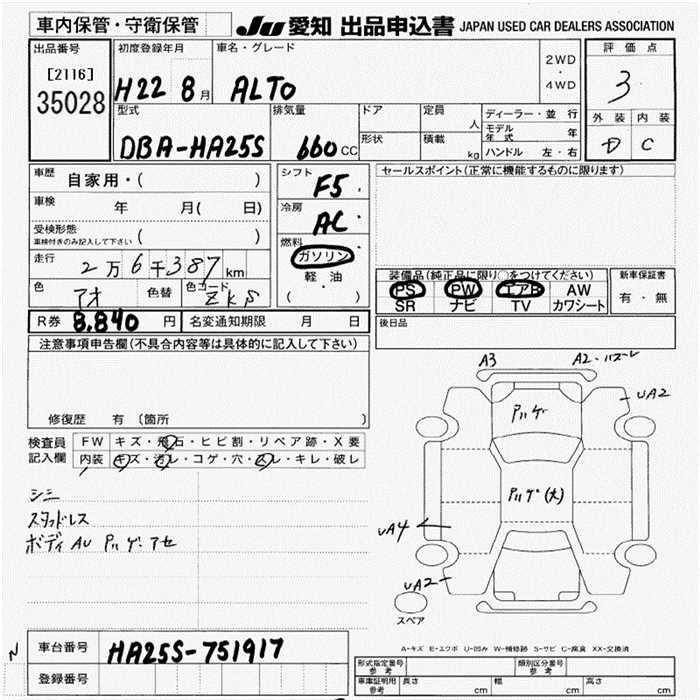 車内保管・守衛保管
JU 愛知 出品申込書 JAPAN USED CAR DEALERS ASSOCIATION
出品番号
[2116]
35028
初度登録年月
H22 8 月
車名・グレード
ALTO
2WD
・
4WD
評価点
3
外装 内装
D C
型式
DBA-HA25S
排気量
660 CC
ドア
形状
定員
人
積載
kg
ディーラー・並行
モデル年式 年
ハンドル 左・右
車歴 自家用・( )
車検 年 月( 日)
受検形態
車検付きのみ記入して下さい ( )
走行 2万6千387 km
色 アオ 色替 色コード ZKS
シフト
F5
冷房
AC
燃料
ガソリン
軽・油
( )
セールスポイント(正常に機能するものに限ります)
装備品(純正品に限り○をつけてください)
PS PW エアB AW
SR ナビ TV カワシート
新車保証書
有・無
R券 8.840 円 名変通知期限 月 日
後日品
注意事項申告欄(不具合内容等は具体的に記入して下さい)
修復歴 有 〔箇所 〕
検査員記入欄
FW キズ・飛石・ヒビ割・リペア跡・X要
内装 キズ・汚レ・コゲ・穴・スレ・キレ・破レ
シミ
スタッドレス
ボディ AU
A3
A2・
UA2
UA4
UA2
スペア
A-キズ E-エクボ U-凹み W-補修跡 S-サビ C-腐食 XX-交換済
N
車台番号 HA25S-751917
登録番号
形式指定番号
参考
類別区分番号
参考
車庫証明用
参考
長さ cm 幅 cm 高さ cm